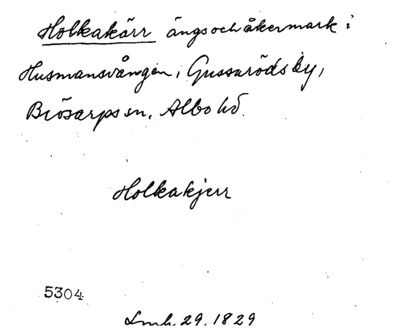 Holkakärr ängs och åkermark i
Husmansvången, Gussaröds by,
Brösarps sn, Albo hd.
Holkakjerr
5304
Lmh. 29. 1829